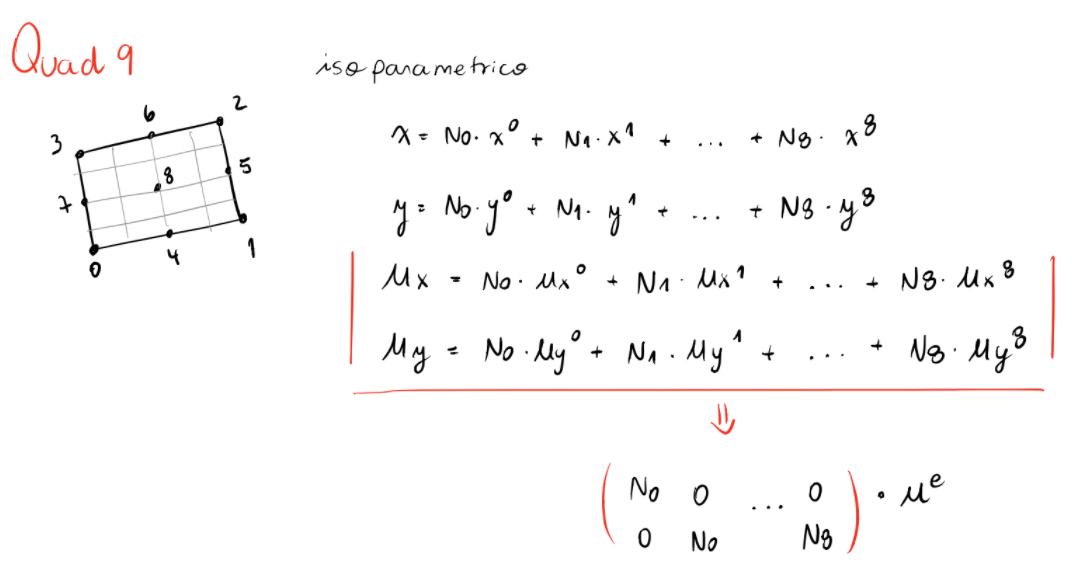 Quad 9
isoparametrico
6
2
3
8
5
7
0
4
1
x = N0 · x⁰ + N1 · x¹ + ... + N8 · x⁸
y = N0 · y⁰ + N1 · y¹ + ... + N8 · y⁸
ux = N0 · ux⁰ + N1 · ux¹ + ... + N8 · ux⁸
uy = N0 · uy⁰ + N1 · uy¹ + ... + N8 · uy⁸
⇓
( N0 0 ... 0 ) · uᵉ
( 0 N0 N8 )